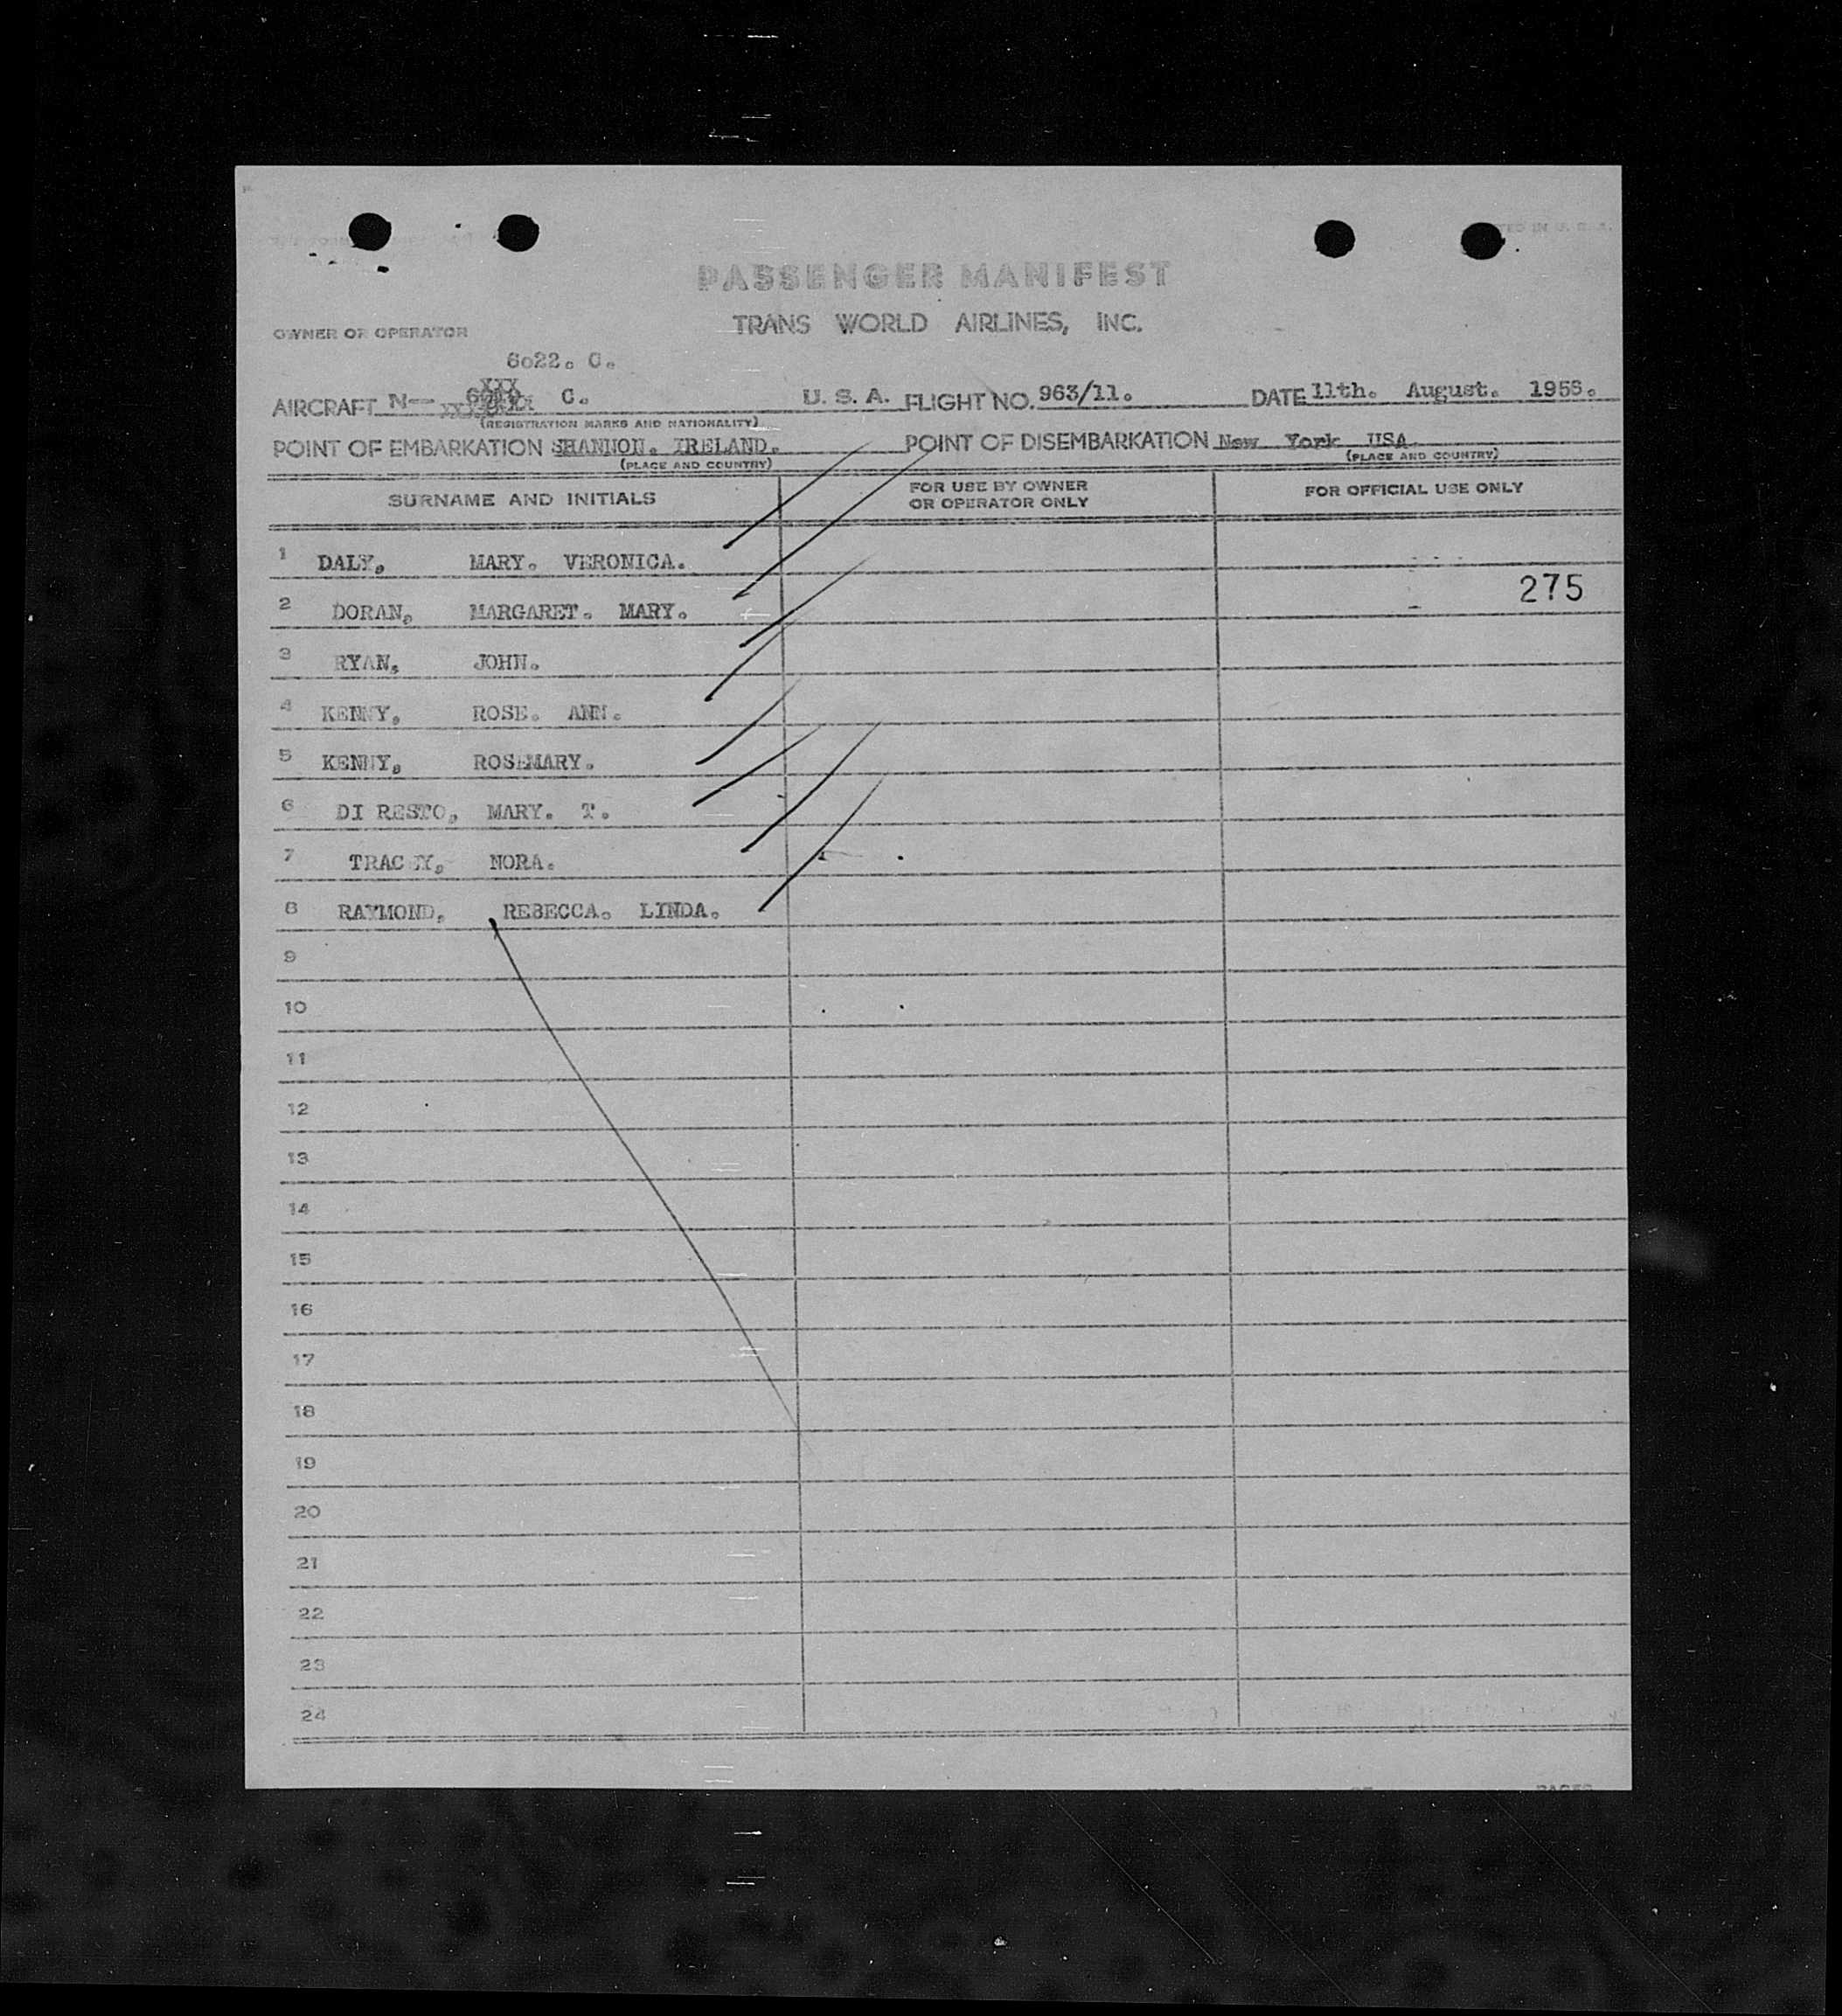 PASSENGER MANIFEST
TRANS WORLD AIRLINES, INC.
OWNER OR OPERATOR
6022. C.
AIRCRAFT N-- C. U. S. A. FLIGHT NO. 963/11. DATE 11th. August. 1955.
(REGISTRATION MARKS AND NATIONALITY)
POINT OF EMBARKATION SHANNON. IRELAND. POINT OF DISEMBARKATION New York USA.
(PLACE AND COUNTRY) (PLACE AND COUNTRY)
SURNAME AND INITIALS FOR USE BY OWNER OR OPERATOR ONLY FOR OFFICIAL USE ONLY
1 DALY, MARY. VERONICA.
275
2 DORAN, MARGARET. MARY.
3 RYAN, JOHN.
4 KENNY, ROSE. ANN.
5 KENNY, ROSEMARY.
6 DI RESTO, MARY. T.
7 TRACEY, NORA.
8 RAYMOND, REBECCA. LINDA.
9
10
11
12
13
14
15
16
17
18
19
20
21
22
23
24